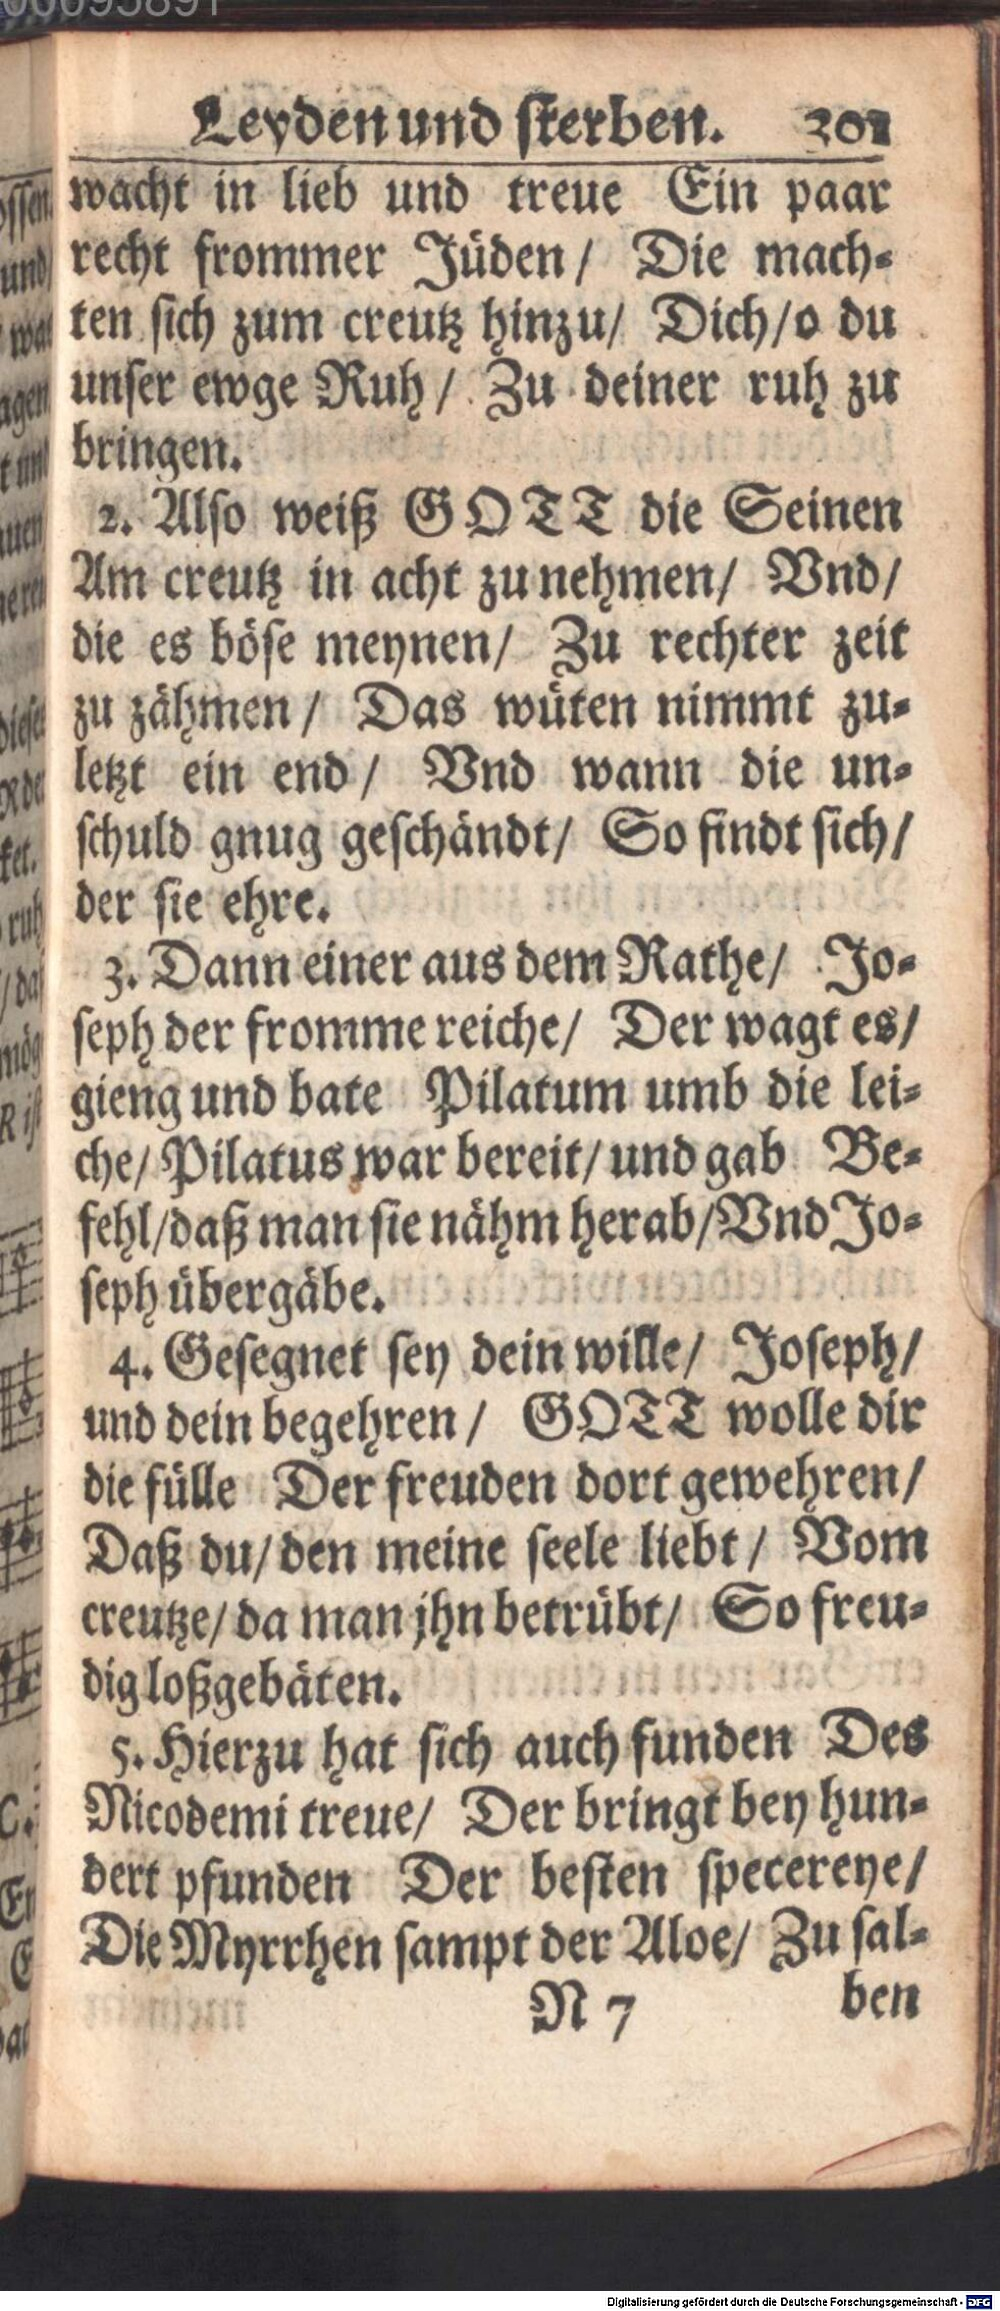 Leyden und sterben. 301
wacht in lieb und treue Ein paar
recht frommer Jüden / Die mach-
ten sich zum creutz hinzu/ Dich/o du
unser ewge Ruh / Zu deiner ruh zu
bringen.
2. Also weiß GOTT die Seinen
Am creutz in acht zu nehmen/ Vnd/
die es böse meynen/ Zu rechter zeit
zu zähmen / Das wüten nimmt zu-
letzt ein end / Vnd wann die un-
schuld gnug geschändt/ So findt sich/
der sie ehre.
3. Dann einer aus dem Rathe/ Jo-
seph der fromme reiche/ Der wagt es/
gieng und bate Pilatum umb die lei-
che/ Pilatus war bereit/ und gab Be-
fehl/daß man sie nähm herab/Vnd Jo-
seph übergäbe.
4. Gesegnet sey dein wille/ Joseph/
und dein begehren / GOTT wolle dir
die fülle Der freuden dort gewehren/
Daß du/ den meine seele liebt / Vom
creutze/ da man jhn betrübt/ So freu-
dig loßgebäten.
5. Hierzu hat sich auch funden Des
Nicodemi treue/ Der bringt bey hun-
dert pfunden Der besten specereye/
Die Myrrhen sampt der Aloe/ Zu sal-
N 7 ben
Digitalisierung gefördert durch die Deutsche Forschungsgemeinschaft - DFG